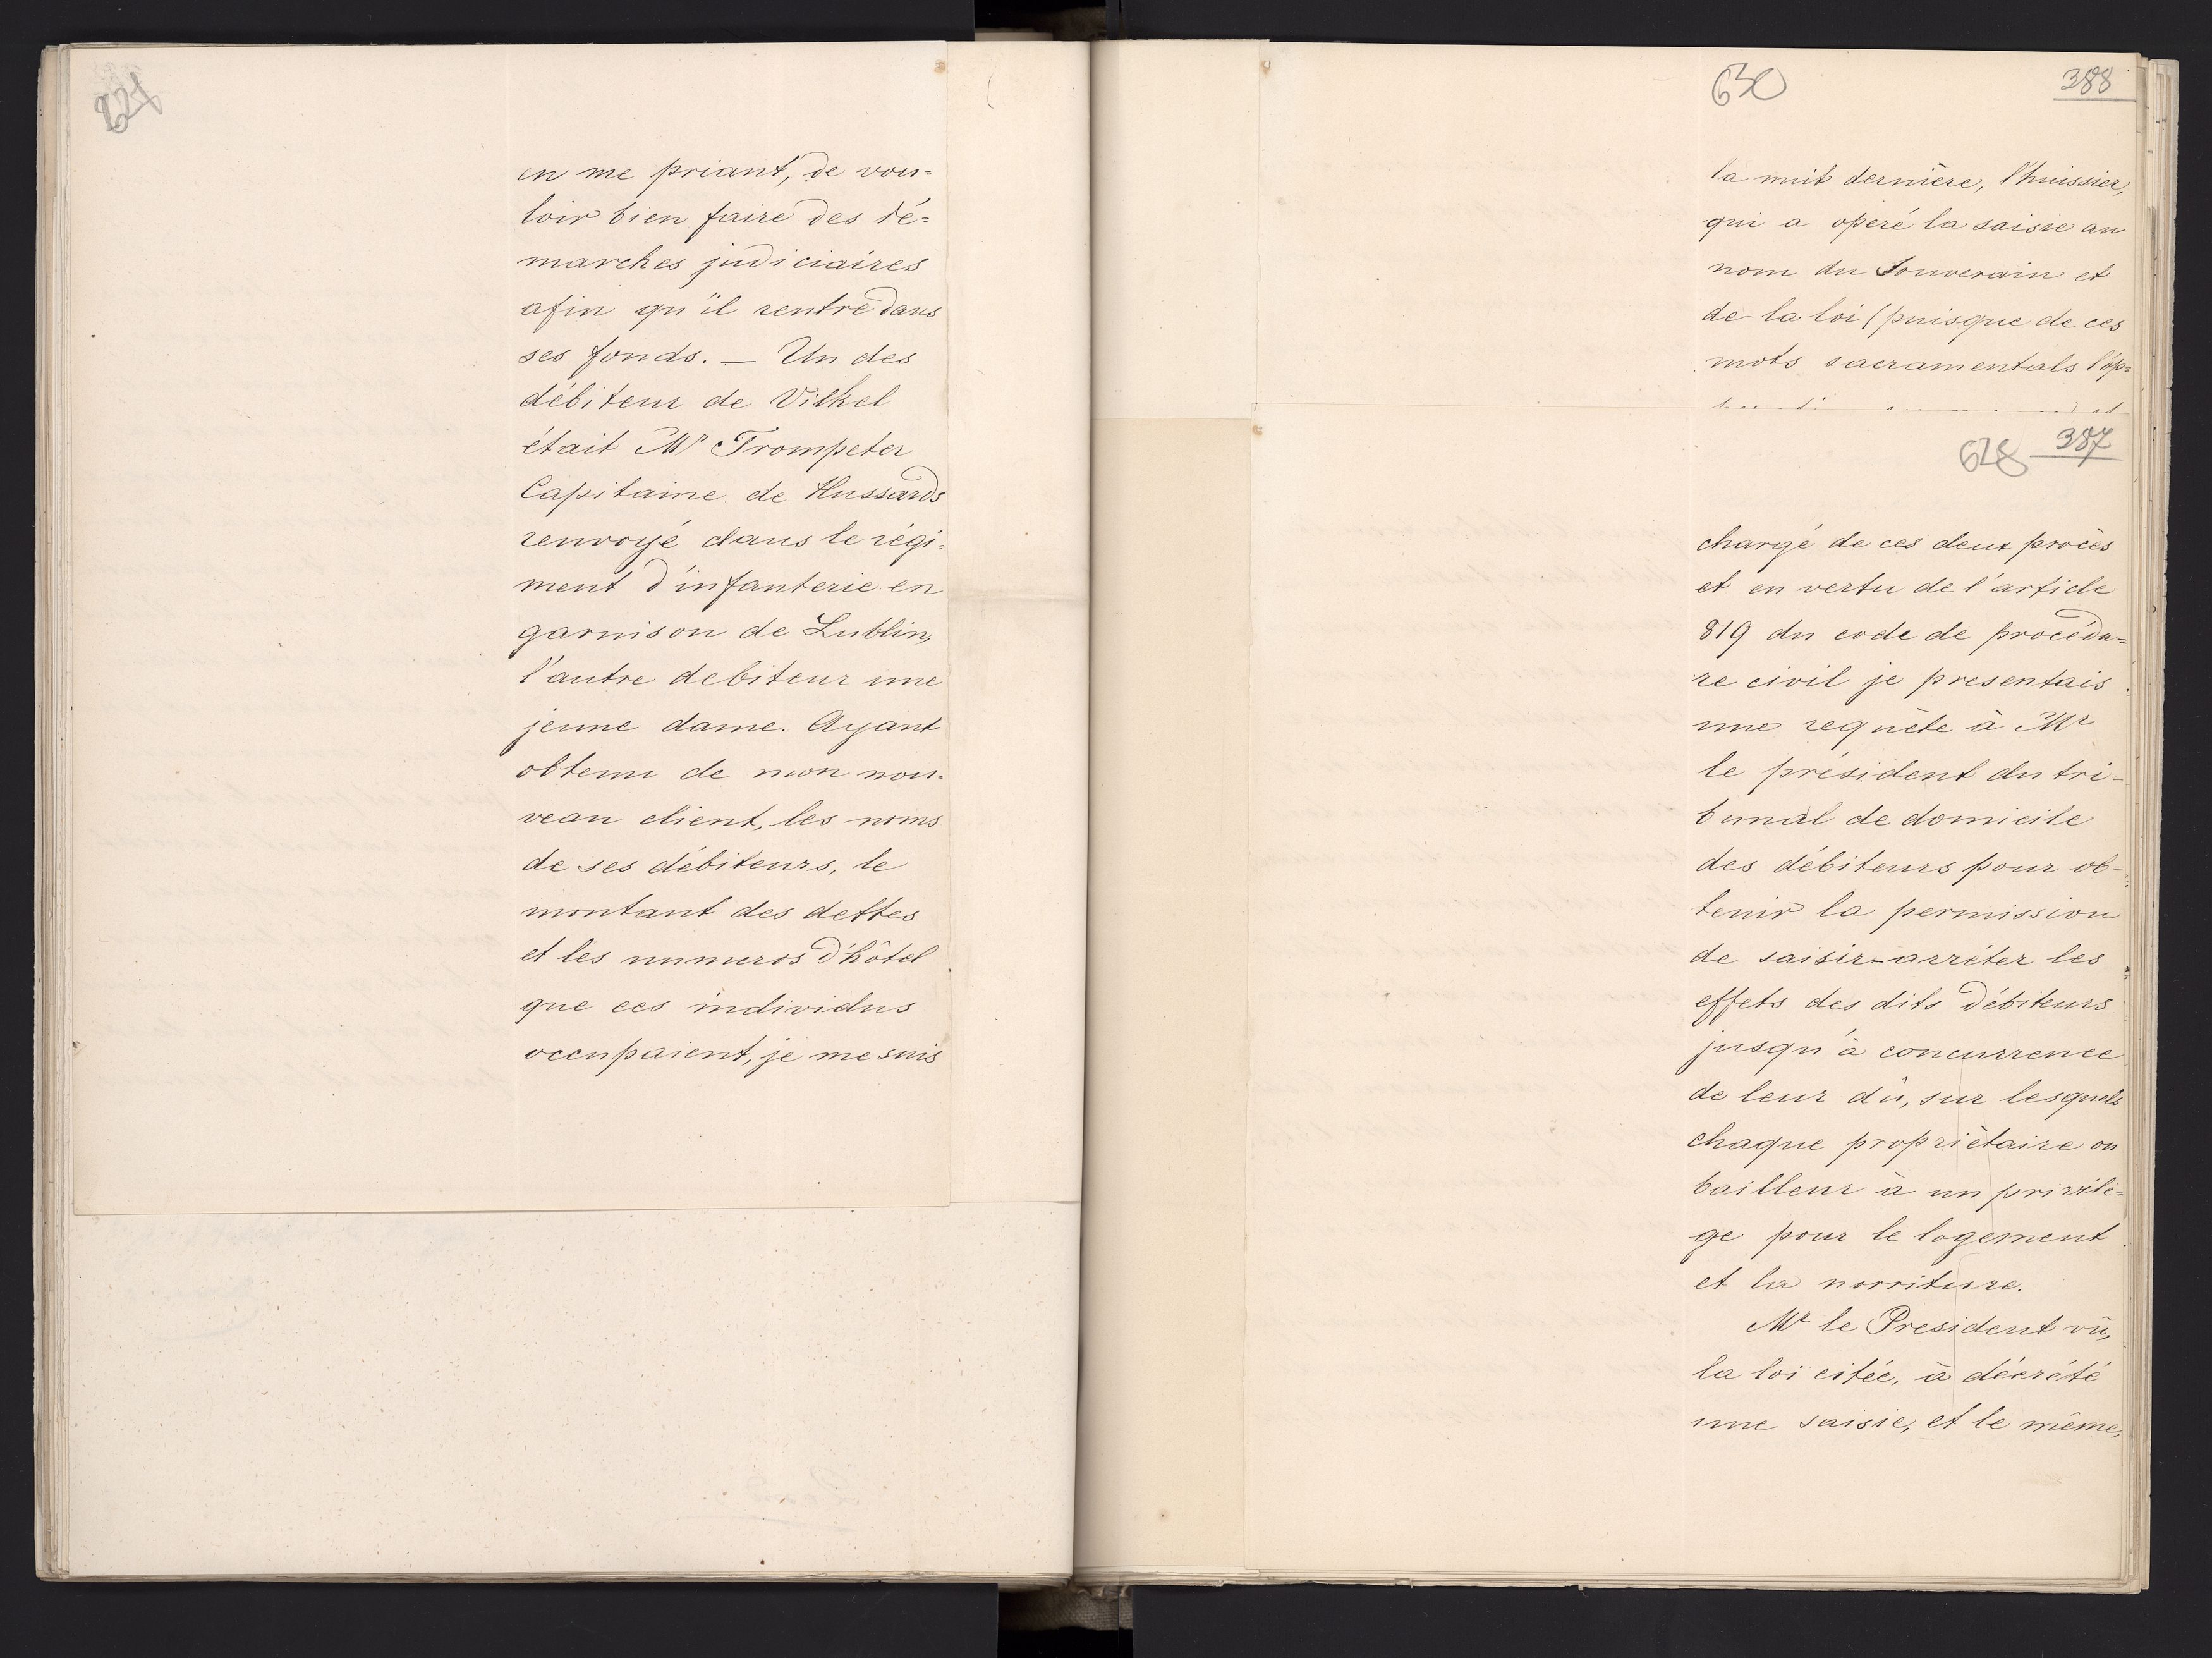 en me priant, de vou=
loir bien faire des dé=
marches judiciaires
afin qu'il rentre dans
ses fonds. — Un des
débiteur de Vilkel
était Mr Trompeter
Capitaine de Hussards
renvoyé dans le régi=
ment d'infanterie en
garnison de Lublin,
l'autre debiteur une
jeune dame. Ayant
obtenu de mon nou=
veau client, les noms
de ses débiteurs, le
montant des dettes
et les numeros d'hôtel
que ces individus
occupaient, je me suis
630 388
la nuit dernière, l'huissier,
qui a operé la saisie au
nom du Souverain et
de la loi (puisque de ces
mots sacramentals l'op=
628 387
chargé de ces deux procès
et en vertu de l'article
819 du code de procédu=
re civil je presentais
une requète à Mr
le président du tri=
bunal de domicile
des débiteurs pour ob-
tenir la permission
de saisir-arréter les
effets des dits débiteurs
jusqu'à concurrence
de leur dû, sur lesquels
chaque propriètaire ou
bailleur à un privilè=
ge pour le logement
et la norriture.
Mr le President vû,
la loi citée, à décrété
une saisie, et le même,